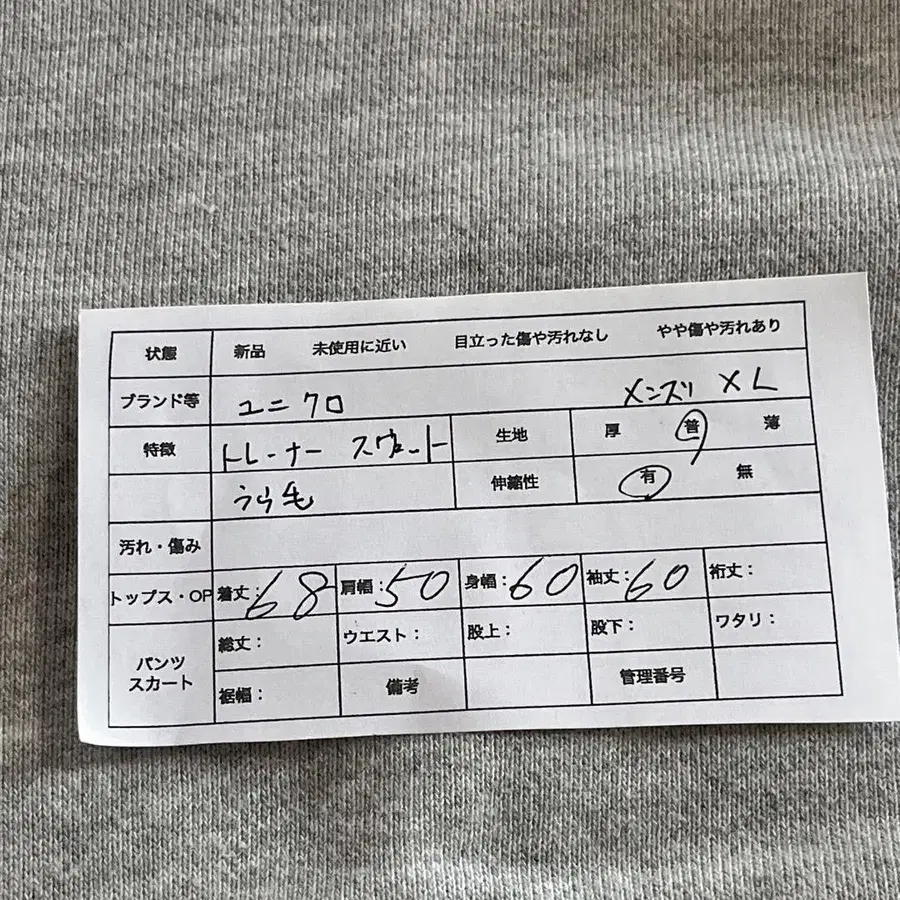 状態 新品 未使用に近い 目立った傷や汚れなし やや傷や汚れあり
ブランド等 ユニクロ メンズリ XL
特徴 トレーナー スウェット 生地 厚 普 薄
うら毛 伸縮性 有 無
汚れ・傷み
トップス・OP 着丈：68 肩幅：50 身幅：60 袖丈：60 裄丈：
パンツ スカート 総丈： ウエスト： 股上： 股下： ワタリ：
裾幅： 備考 管理番号